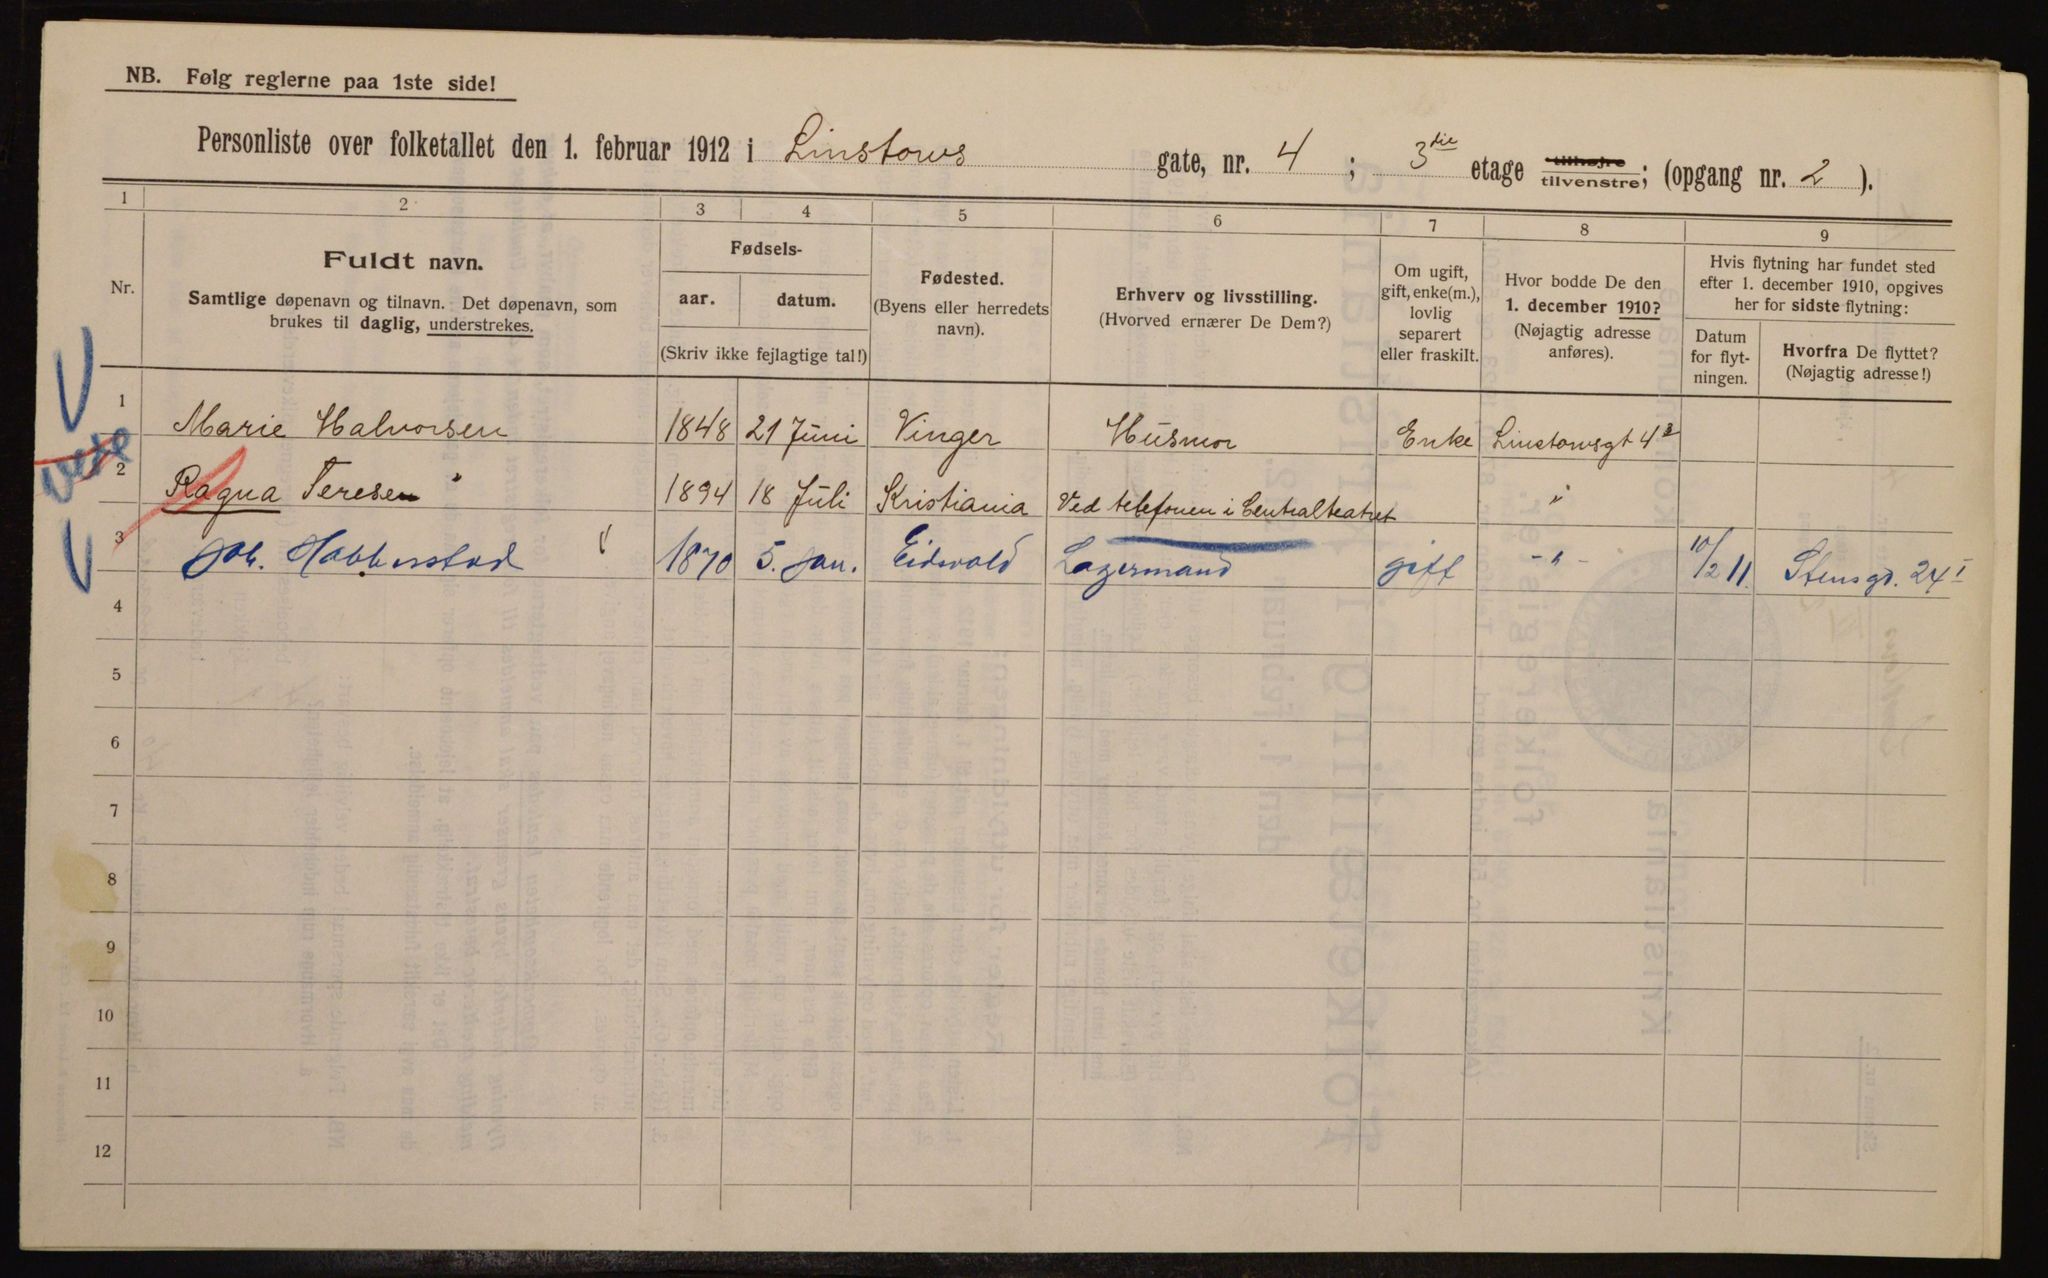 NB. Følg reglerne paa 1ste side!
Personliste over folketallet den 1. februar 1912 i Linstows gate, nr. 4 ; 3die etage tilhøjre tilvenstre; (opgang nr. 2 ).
1 2 3 4 5 6 7 8 9
Nr.
Fuldt navn.
Samtlige døpenavn og tilnavn. Det døpenavn, som
brukes til daglig, understrekes.
Fødsels-
aar. datum.
(Skriv ikke fejlagtige tal!)
Fødested.
(Byens eller herredets
navn).
Erhverv og livsstilling.
(Hvorved ernærer De Dem?)
Om ugift,
gift, enke(m.),
lovlig
separert
eller fraskilt.
Hvor bodde De den
1. december 1910?
(Nøjagtig adresse
anføres).
Hvis flytning har fundet sted
efter 1. december 1910, opgives
her for sidste flytning:
Datum
for flyt-
ningen.
Hvorfra De flyttet?
(Nøjagtig adresse!)
1 Marie Halvorsen 1848 21 Juni Vinger Husmor Enke Linstowsgt 4
2 Ragna Teresen " 1894 18 Juli Kristiania Ved telefonen i Centralteatret "
3 Joh. Habberstad 1870 5. Jan. Eidsvold Lagermand gift - " - 10/2 11. Stensgd. 24 I
4
5
6
7
8
9
10
11
12